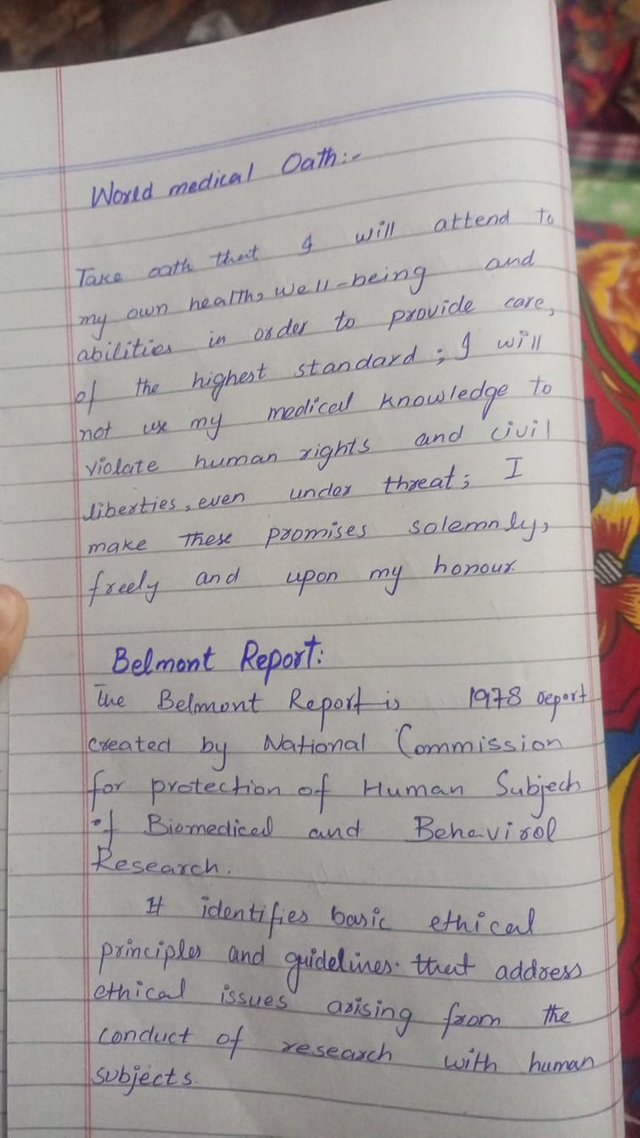 World medical Oath:-
Take oath that I will attend to
my own health, well-being and
abilities in order to provide care,
of the highest standard; I will
not use my medical knowledge to
violate human rights and civil
liberties, even under threat; I
make these promises solemnly,
freely and upon my honour
Belmont Report:
The Belmont Report is 1978 report
created by National Commission
for protection of Human Subject
of Biomedical and Behaviral
Research.
It identifies basic ethical
principles and guidelines. that address
ethical issues arising from the
conduct of research with human
subjects.